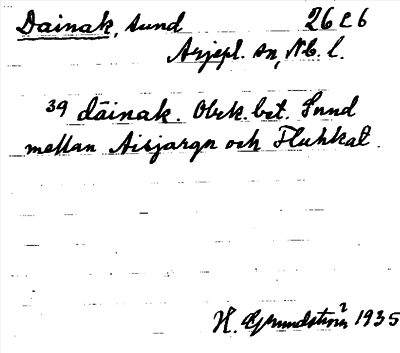 Dainak, sund 26 E 6
Arjepl. sn, Nb. l.
39 däinak. Obek. bet. Sund
mellan Aisjargn och Fluhkat.
H. Grundström 1935